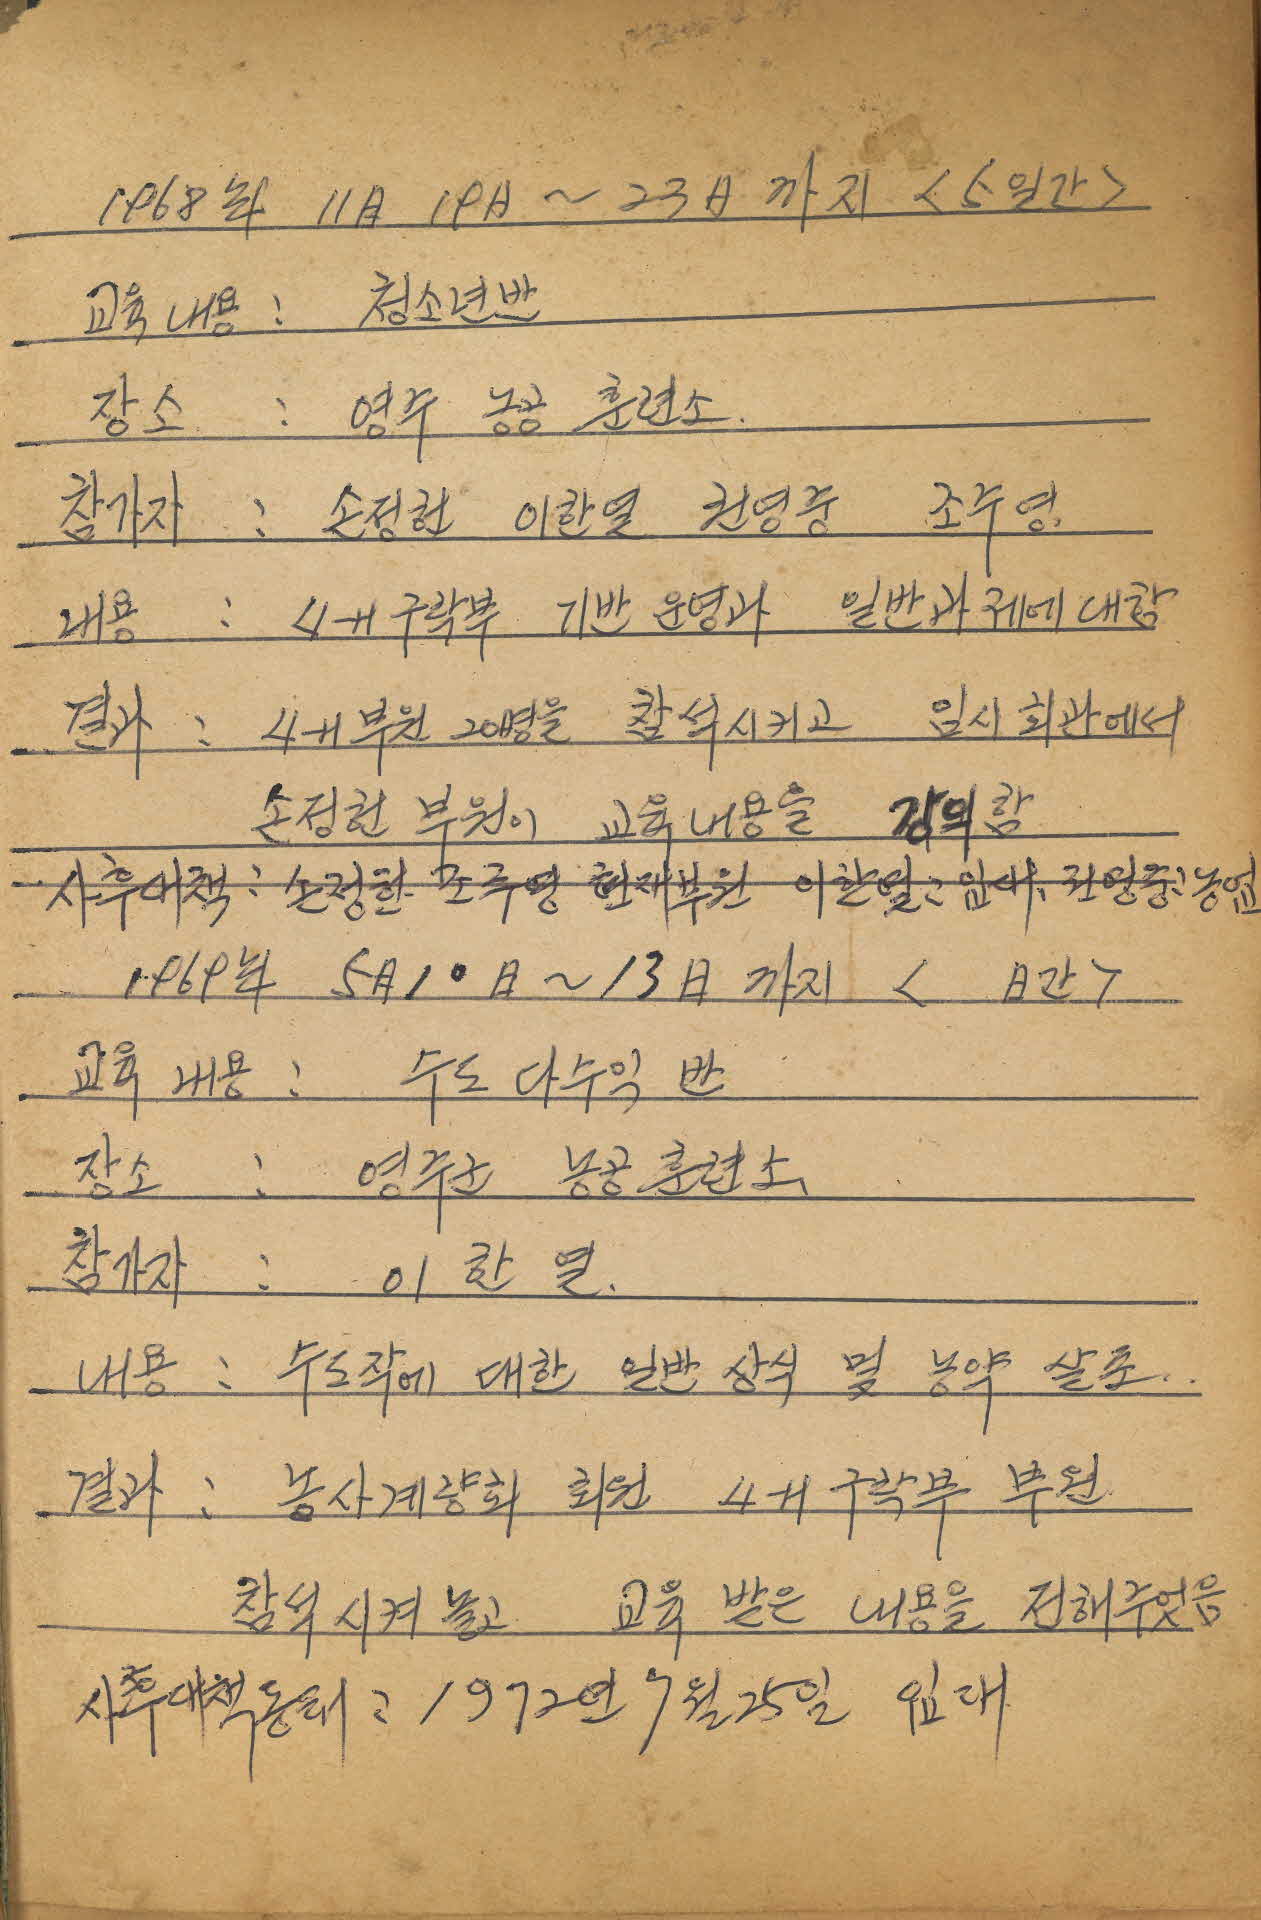 1968年 11月 19日 ~ 23日 까지 <5일간>
교육내용 : 청소년반
장소 : 영주 농공 훈련소.
참가자 : 손정헌 이한열 권영중 조주영.
내용 : 4-H 구락부 기반 운영과 일반과제에 대함
결과 : 4-H 부원 20명을 참석시키고 임시회관에서
손정헌 부원이 교육내용을 강의함
사후대책 : 손정헌 조주영 현재부원 이한열: 입대, 권영중: 농업
1969年 5月 10日 ~ 13日 까지 < 日간>
교육 내용 : 수도 다수익 반
장소 : 영주군 농공훈련소,
참가자 : 이 한 열.
내용 : 수도작에 대한 일반 상식 및 농약 살포..
결과 : 농사계량회 회원 4-H 구락부 부원
참석시켜 놓고 교육 받은 내용을 전해주었음
사후대책동태 : 1972연 7월 25일 입대